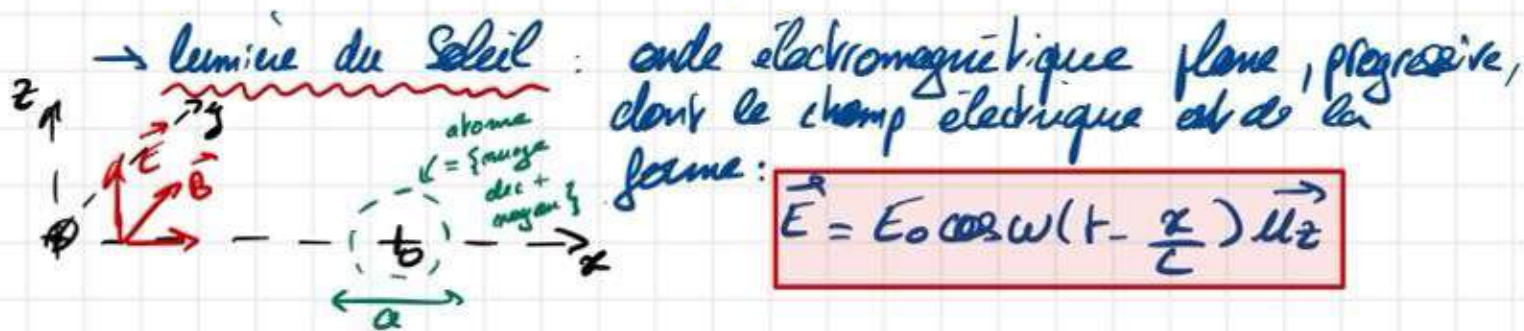 → lumière du Soleil : onde électromagnétique plane, progressive,
dont le champ électrique est de la
forme :
E = E₀ cos ω(t - x/c) u_z
z
y
E
B
atome
= {nuage
élec +
noyau}
x
a